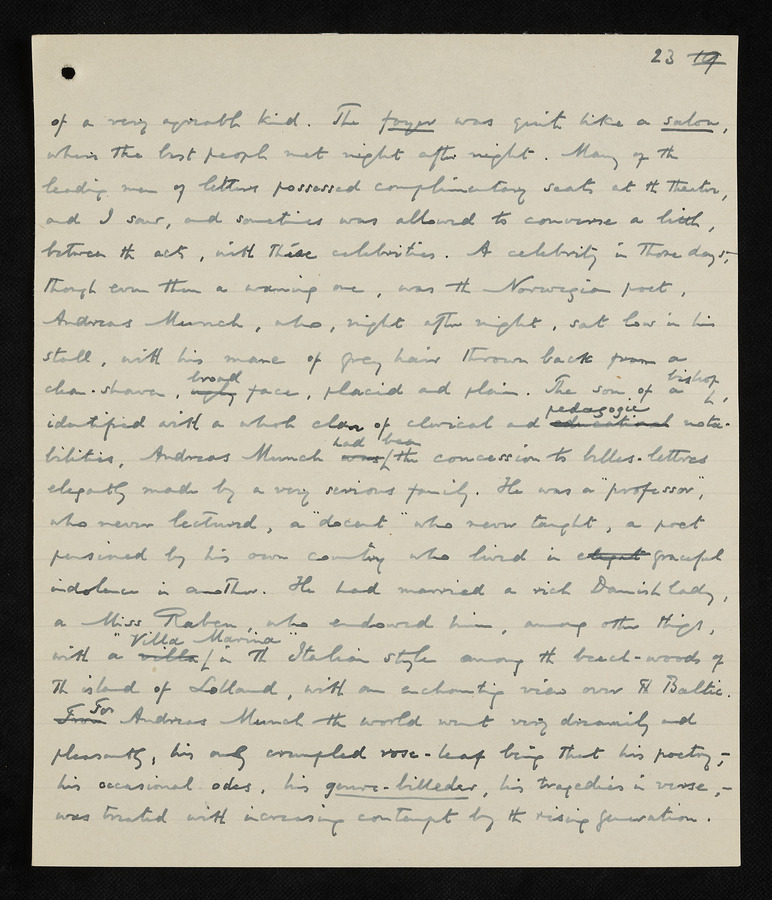 23 19
of a very agreeable kind. The foyer was quite like a salon,
where the best people met night after night. Many of the
leading men of letters possessed complimentary seats at the theatre,
and I saw, and sometimes was allowed to converse a little,
between the acts, with these celebrities. A celebrity in those days,
though even then a waning one, was the Norwegian poet,
Andreas Munch, who, night after night, sat low in his
stall, with his mane of grey hair thrown back from a
clean-shaven, ugly broad face, placid and plain. The son of a bishop,
identified with a whole clan of clerical and educational pedagogic nota-
bilities, Andreas Munch was had been the concession to belles-lettres
elegantly made by a very serious family. He was a "professor",
who never lectured, a "docent" who never taught, a poet
pensioned by his own country who lived in elegant graceful
indolence in another. He had married a rich Danish lady,
a Miss Raben, who endowed him, among other things,
with a villa "Villa Marina" in the Italian style among the beech-woods of
the island of Lolland, with an enchanting view over the Baltic.
From For Andreas Munch the world went very dreamily and
pleasantly, his only crumpled rose-leaf being that his poetry,-
his occasional odes, his genre-billeder, his tragedies in verse,-
was treated with increasing contempt by the rising generation.